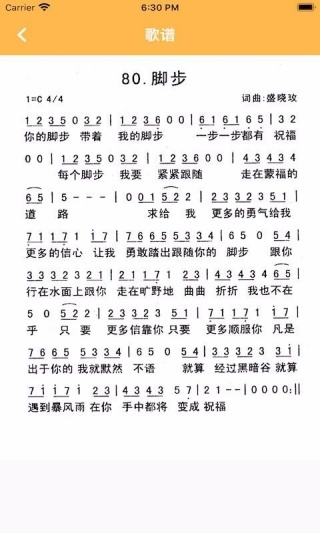 Carrier 6:30 PM
歌谱
80.脚步
1=C 4/4 词曲:盛晓玫
1 2 3 5 0 3 2 | 1 2 3 6 0 0 | 6 1 6 1 6 5 | 3 2
你的脚步 带着 我的脚步 一步一步都有 祝福
0 0 | 1 2 3 5 0 3 2 | 1 2 3 6 0 | 4 3 4 3 4
每个脚步 我要 紧紧跟随 走在蒙福的
6 5 | 5 - - - | 0 1 5 1 2 2 | 2 3 2 3 5 1
道 路 求给 我 更多的勇气给我
7 1 1 7 1 1 7 | 1 6 7 1 7 6 6 3 | 6 5 0 5 4
更多的信心 让我 勇敢踏出跟随你的 脚步 跟你
3 3 2 3 2 1 | 0 5 2 2 2 | 3 4 3 4 4 6 5
行在水面上跟你 走在旷野地 曲曲 折折 我也不在
5 0 5 2 2 | 2 3 2 3 5 1 | 7 1 7 1 1 7
乎 只 要 更多信靠你 只要 更多顺服你 凡是
1 6 7 6 5 5 3 4 | 6 6 5 0 3 4 | 3 3 2 3 3 1
出于你的 我就默然 不语 就算 经过黑暗谷 就算
7 1 1 7 1 2 3 | 4 3 4 3 5 7 | 2 1 - - | 0 0 0 0 |
遇到暴风雨 在你 手中都将 变成 祝福